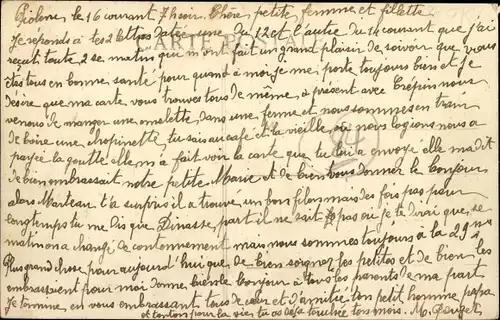 Piolenc le 16 courant 7h soir. Chère petite femme et fillette
Je réponds à tes 2 lettres datée une du 12 et l'autre du 14 courant que j'ai
reçut toute 2 se matins qui m'ont fait un grand plaisir de savoir que vous
êtes tous en bonne santé pour quand à moi je me porte toujours bien et je
désire que ma carte vous trouves tous de même, à présent avec Crepin nous
venons de manger une omelette dans une ferme et nous sommes en train
de boire une chopinette, tu sais au café et la vieille ou nous logions nous a
payée la goutte elle m'a fait voir la carte que tu lui a envoyé elle m'a dit
de bien embrassait notre petite Marie et de bien vous donner le bonjour
alors Marteau t'a surpris il a trouve un bon filons mais des fois pas pour
longtemps tu me dis que Dinasse part il ne sait pas où je te dirai que se
matin on a changé de contonnement mais nous sommes toujours à la 29me
Plus grand chose pour aujourd'hui que de bien soigner les petites et de bien les
embrassaient pour moi donne bien le bonjour à tous les parents de ma part
Je termine en vous embrassant tous de cœur et d'amitié ton petit homme papa
et tonton pour la vien tu as déjà touchée ton mois. M.